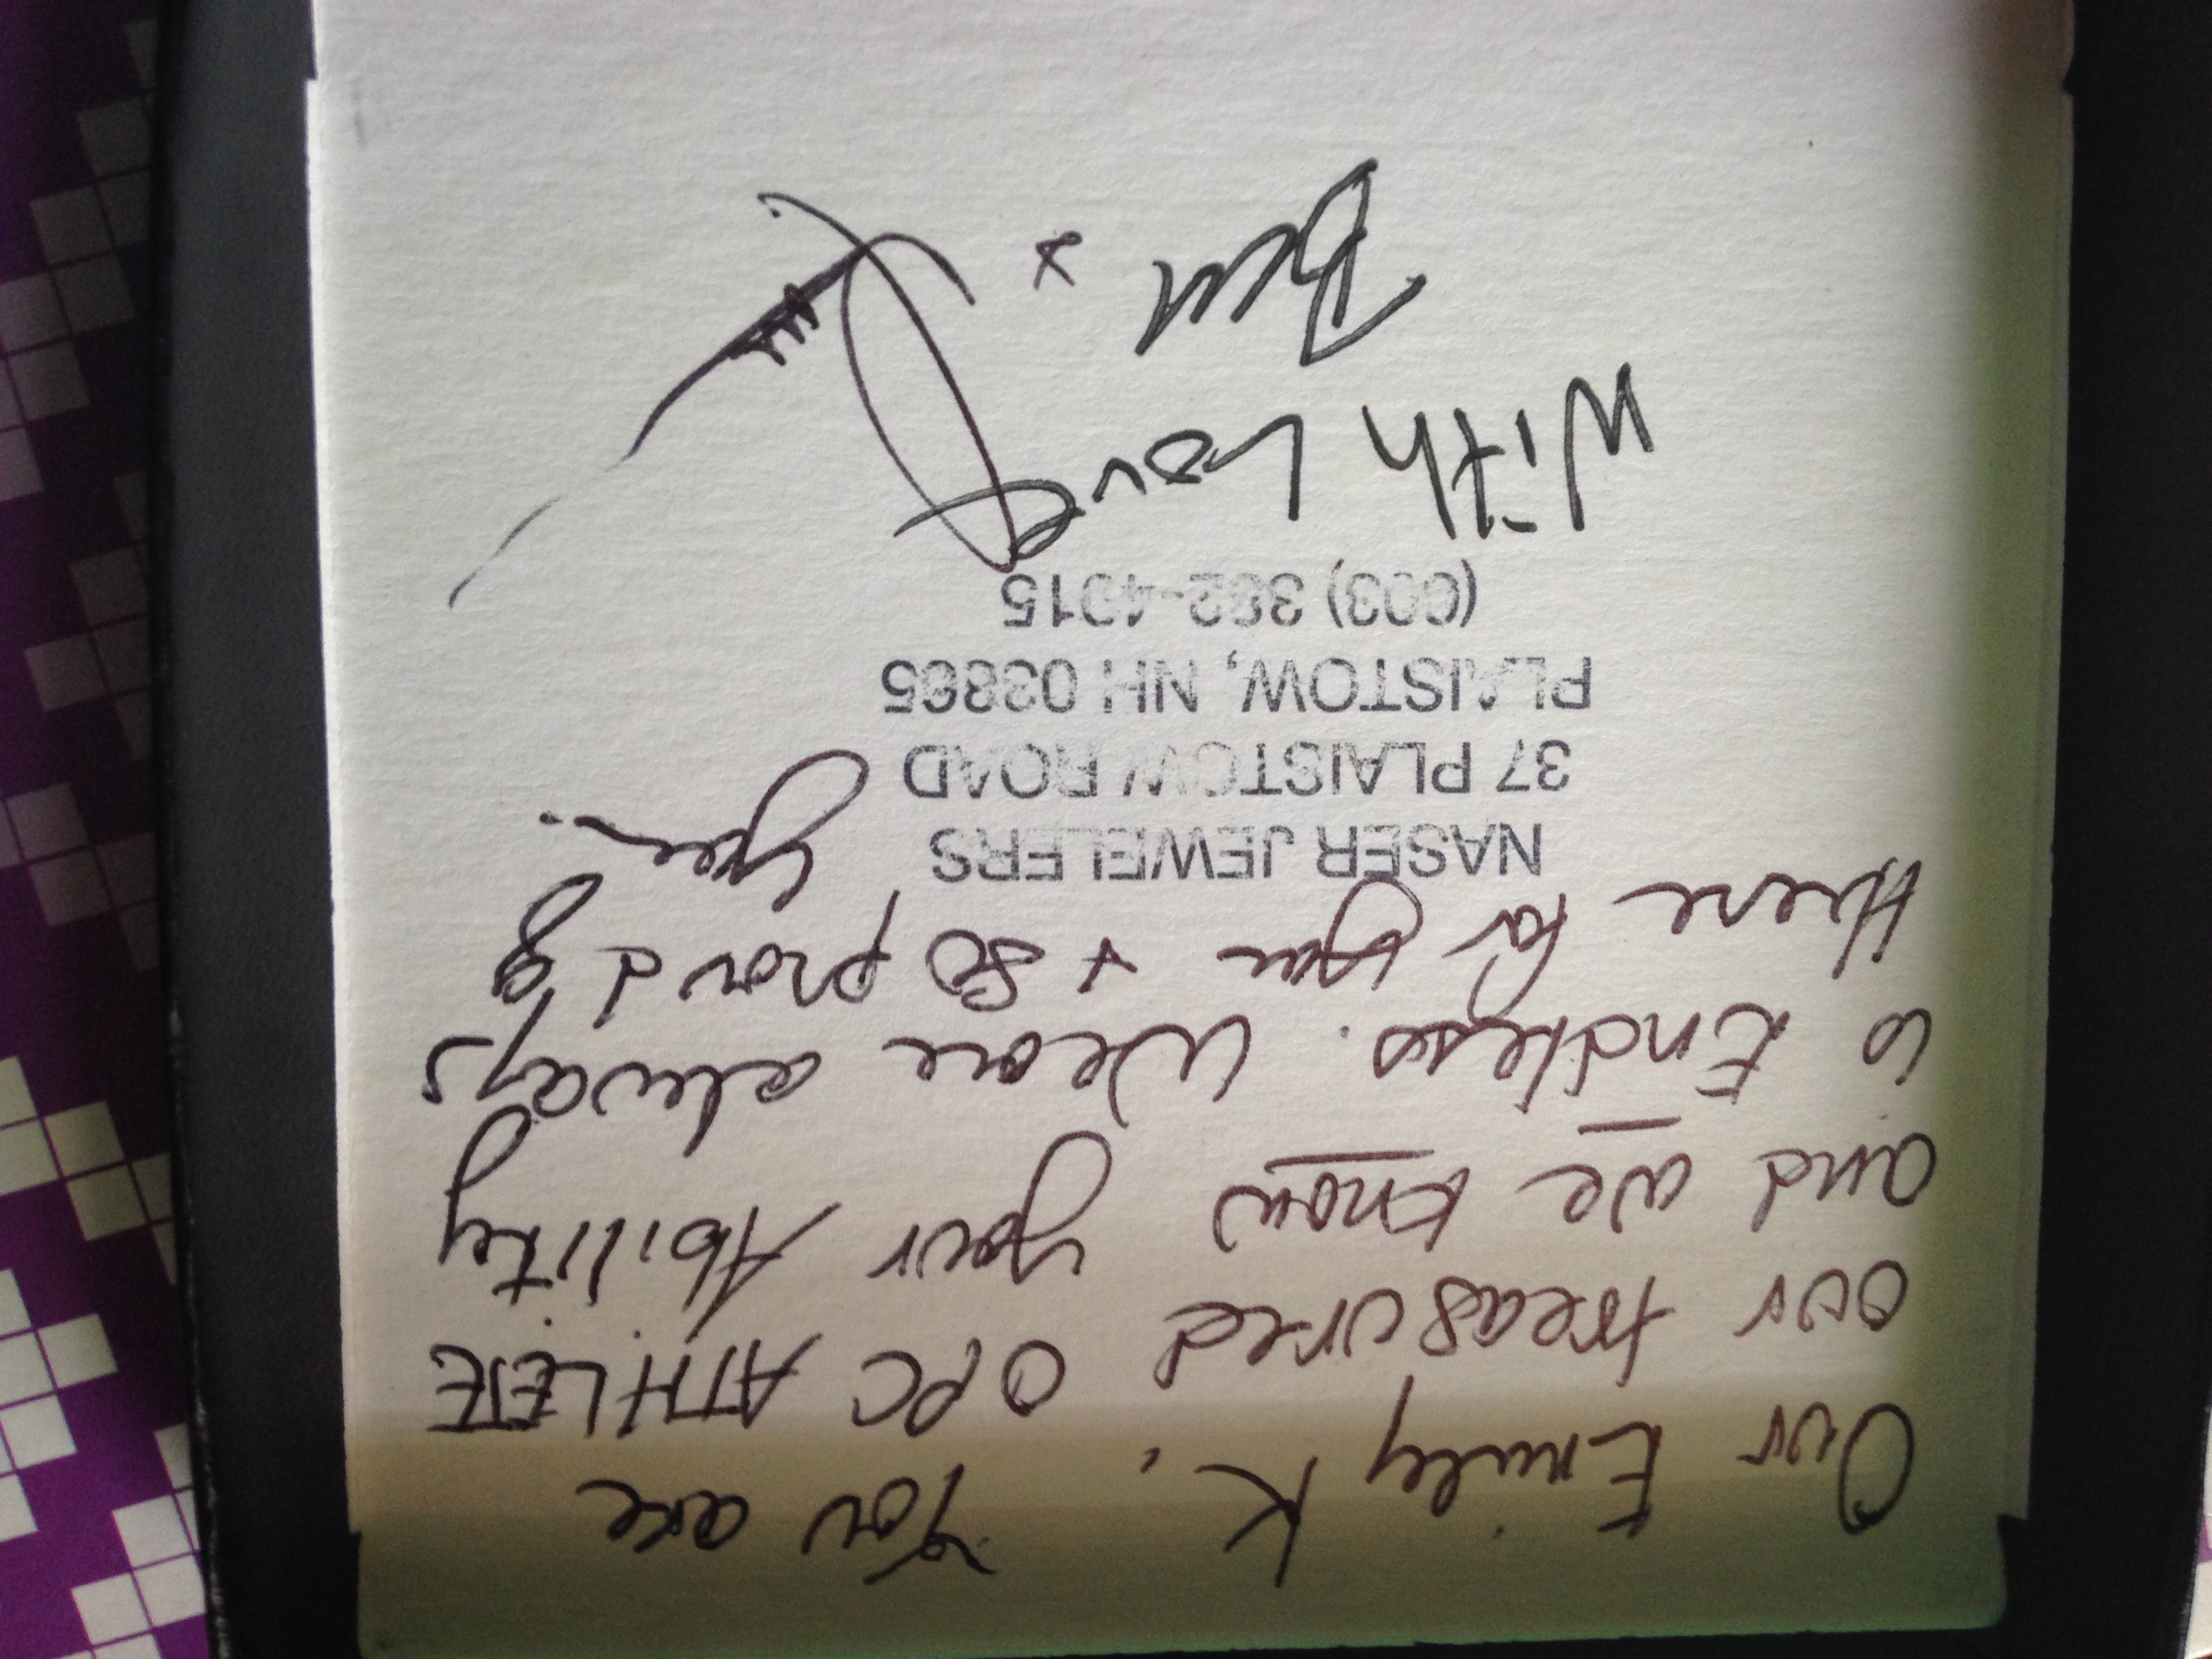 Our Emily K, You are
our treasured OPC ATHLETE
and we know your Ability
is Endless. We are always
Here for you + so proud of
you.
NASER JEWELERS
37 PLAISTOW ROAD
PLAISTOW, NH 03865
(603) 382-4015
With Love
+